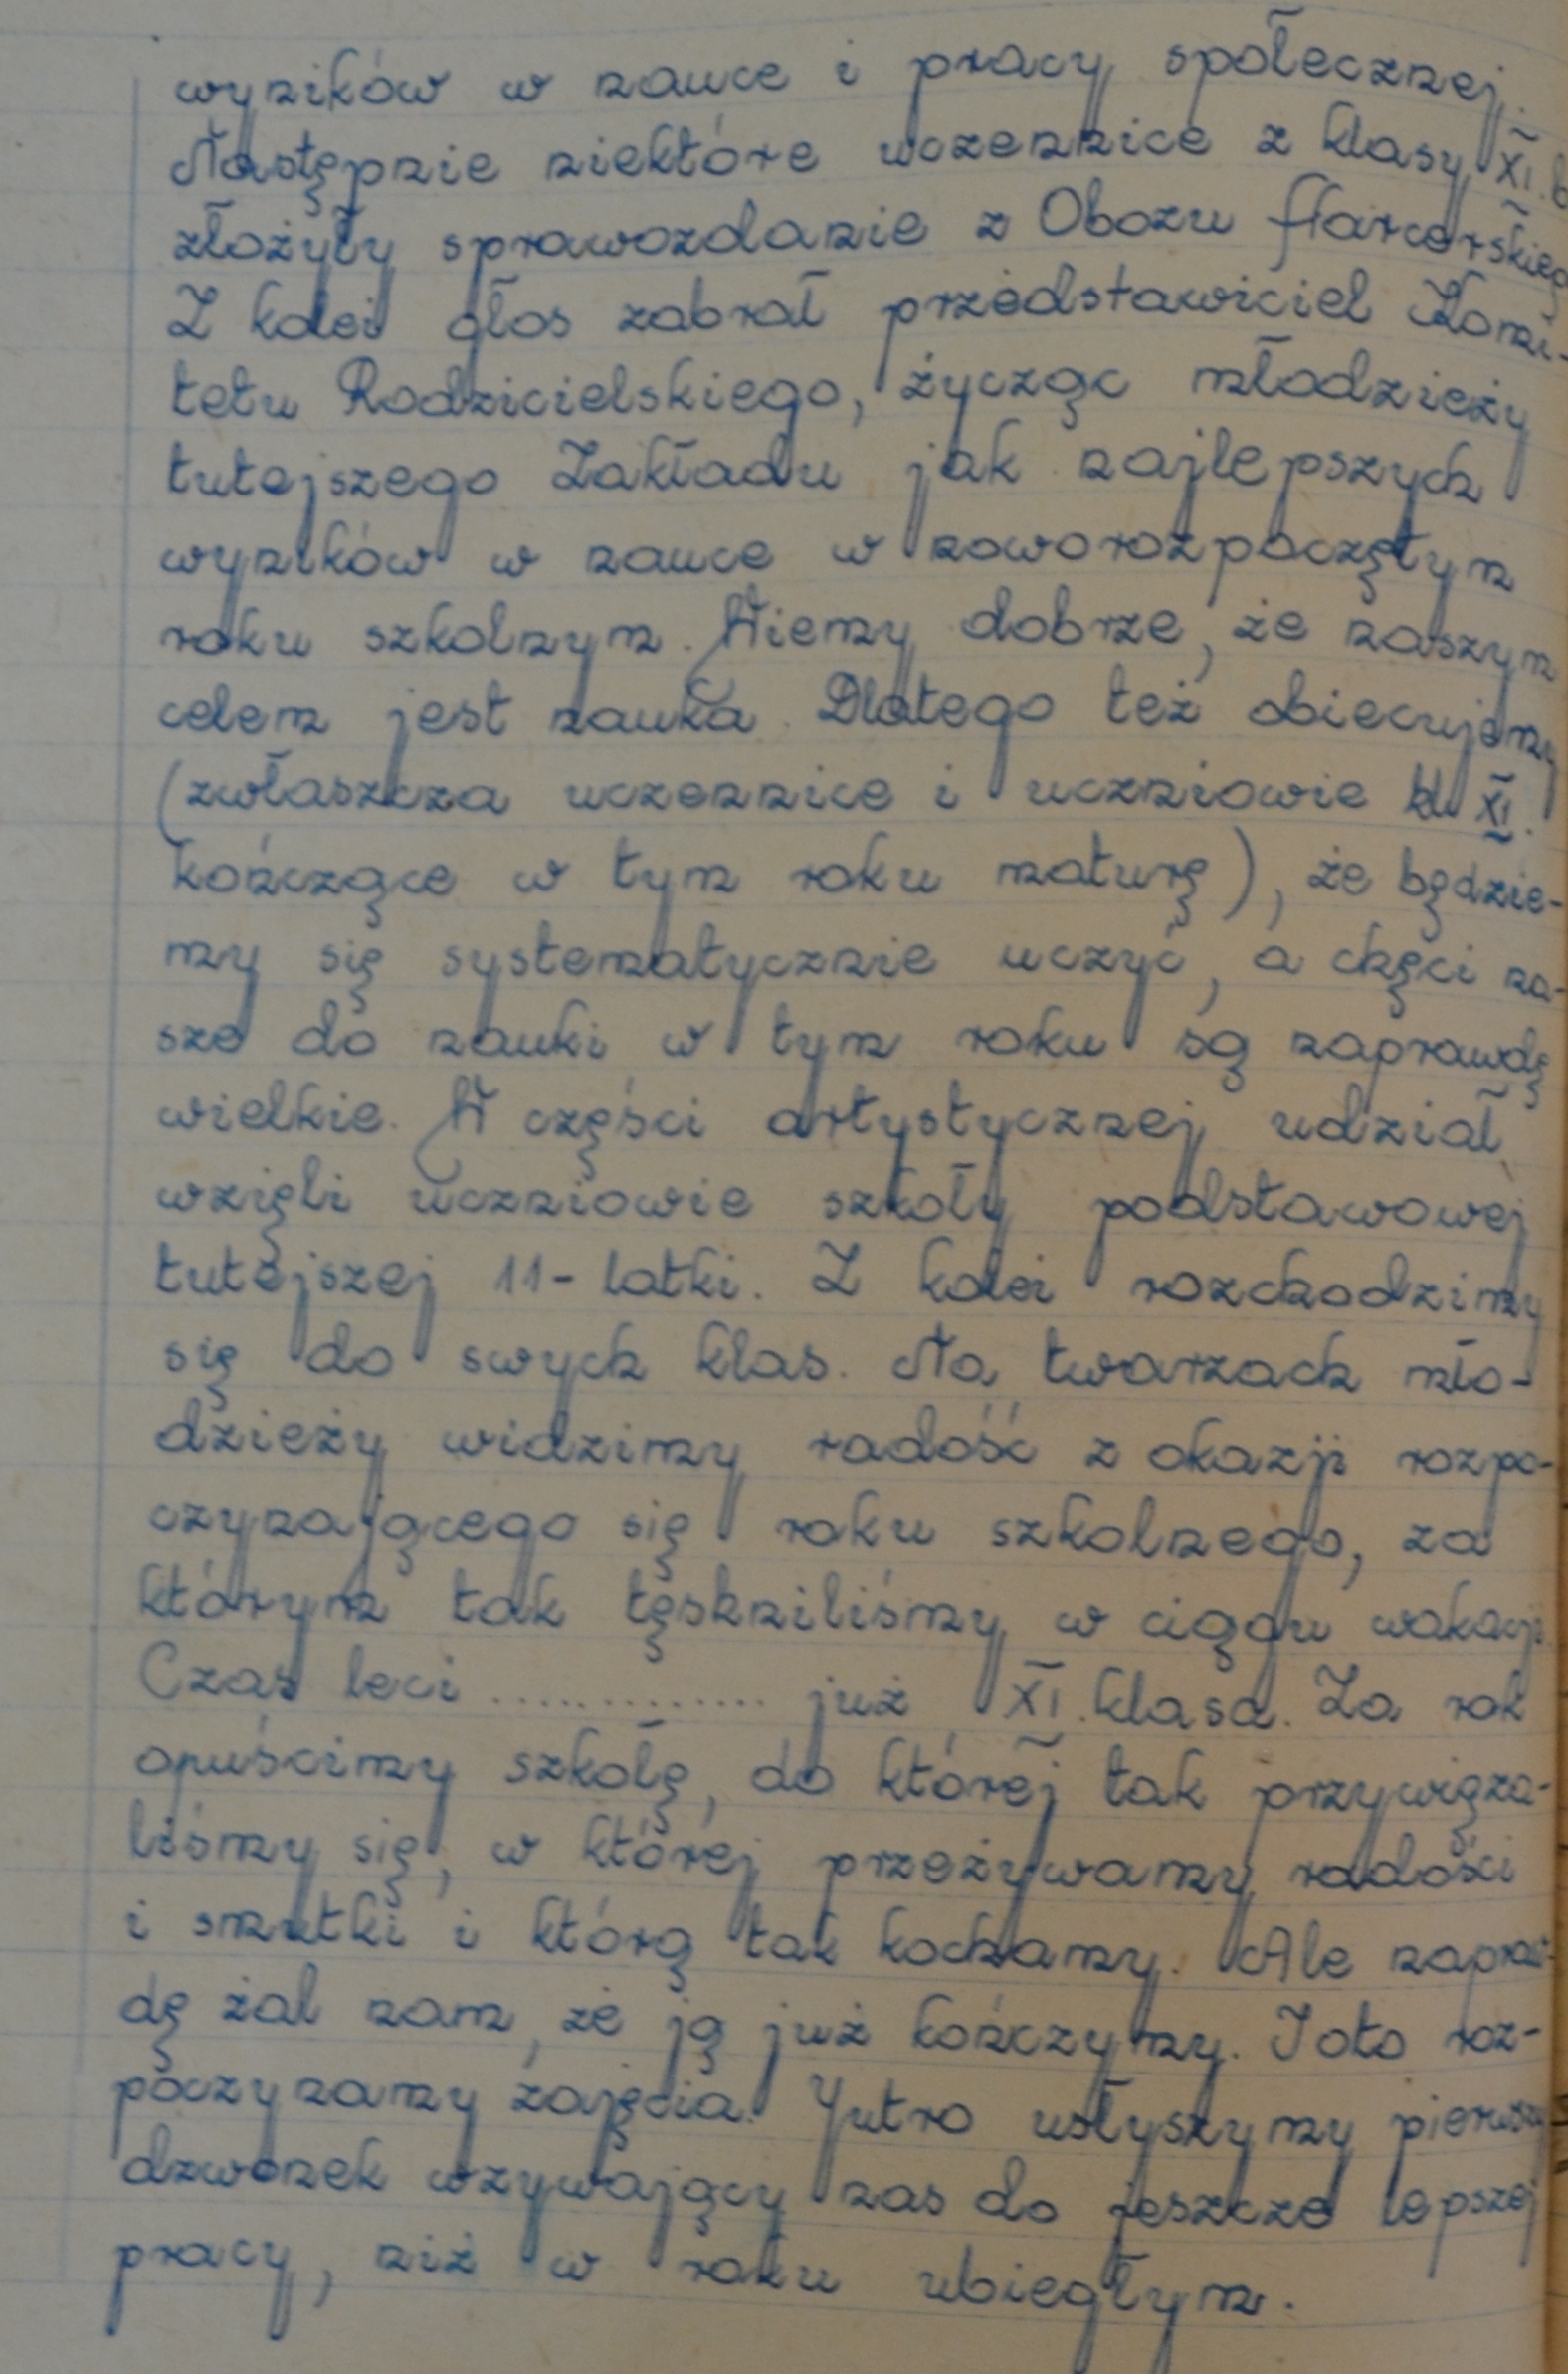 wyników w nauce i pracy społecznej.
Następnie niektóre uczennice z klasy XI.b
złożyły sprawozdanie z Obozu Harcerskieg
Z kolei głos zabrał przedstawiciel Komi-
tetu Rodzicielskiego, życząc młodzieży
tutejszego Zakładu jak najlepszych
wyników w nauce w noworozpoczętym
roku szkolnym. Wiemy dobrze, że naszym
celem jest nauka. Dlatego też obiecujemy
(zwłaszcza uczennice i uczniowie kl XI.
kończące w tym roku maturę), że będzie-
my się systematycznie uczyć, a chęci na-
sze do nauki w tym roku są naprawdę
wielkie. W części artystycznej udział
wzięli uczniowie szkoły podstawowej
tutejszej 11-latki. Z kolei rozchodzimy
się do swych klas. Na twarzach mło-
dzieży widzimy radość z okazji rozpo-
czynającego się roku szkolnego, za
którym tak tęskniliśmy w ciągu wakacji
Czas leci .............. już XI. klasa. Za rok
opuścimy szkołę, do której tak przywiąza-
liśmy się, w której przeżywamy radości
i smutki i którą tak kochamy. Ale napraw-
dę żal nam, że ją już kończymy. I oto roz-
poczynamy zajęcia. Jutro usłyszymy pierwszy
dzwonek wzywający nas do jeszcze lepszej
pracy, niż w roku ubiegłym.